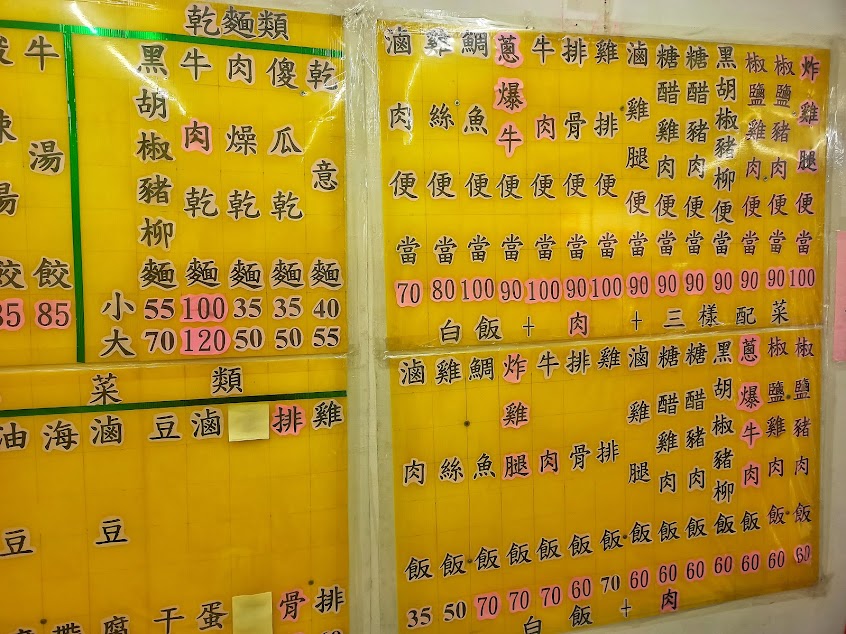 牛湯餃 85
乾麵類
小
大
黑胡椒豬柳麵 55 70
牛肉乾麵 100 120
肉燥乾麵 35 50
傻瓜乾麵 35 50
乾意麵 40 55
菜類
油豆
海帶
滷豆腐
豆干
滷蛋
排骨
雞排
滷肉便當 70
雞絲便當 80
鯛魚便當 100
蔥爆牛便當 90
牛肉便當 100
排骨便當 90
雞排便當 100
滷雞腿便當 90
糖醋雞肉便當 90
糖醋豬肉便當 90
黑胡椒豬柳便當 90
椒鹽雞肉便當 90
椒鹽豬肉便當 90
炸雞腿便當 100
白飯+肉+三樣配菜
滷肉飯 35
雞絲飯 50
鯛魚飯 70
炸雞腿飯 70
牛肉飯 70
排骨飯 60
雞排飯 70
滷雞腿飯 60
糖醋雞肉飯 60
糖醋豬肉飯 60
黑胡椒豬柳飯 60
蔥爆牛肉飯 60
椒鹽雞肉飯 60
椒鹽豬肉飯 60
白飯+肉